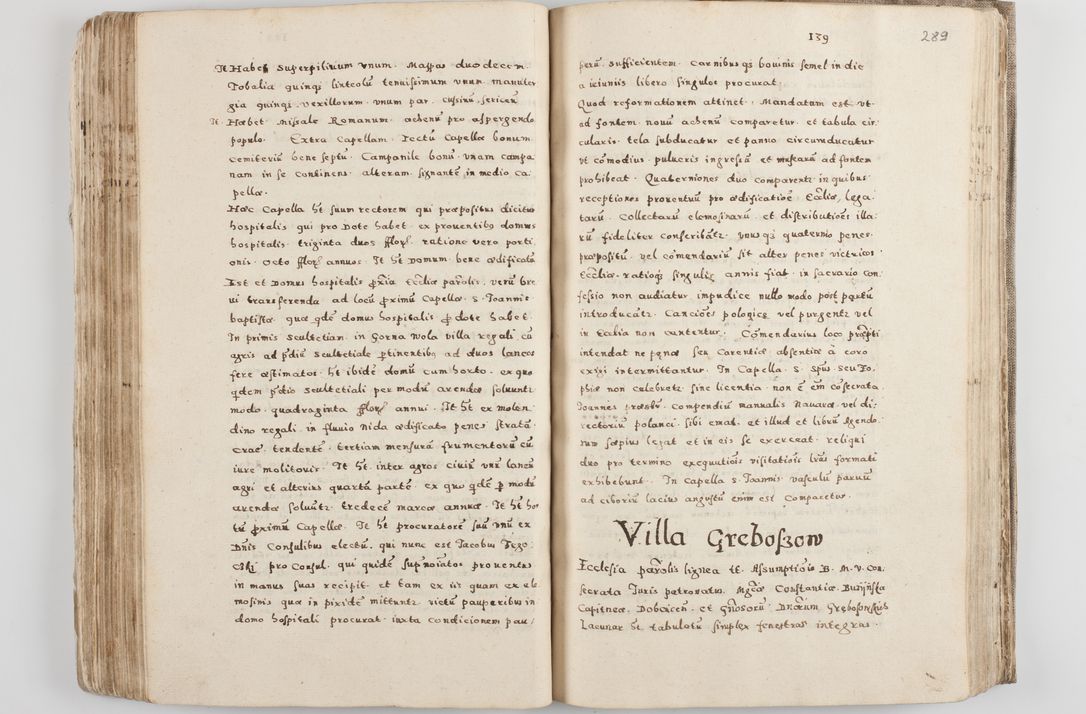 It Habet superpilicium unum. Mappas duodecem
Tobalia quinqȝ linteolũ tenuissimum unum manuter
gia quinqȝ. vexillorum. unum par. cussinũ sericeũ
It Habet Missale Romanum. achenũ pro aspergendo
populo. Extra Capellam. Tectũ Capellæ bonum
cemiteriũ bene septũ. Campanile bonũ. unam campa
nam in se continens. alteram signantẽ in medio ca
pellæ.
Hæc Capella ht̃ suum rectorem qui præpositus dicitur
hospitalis qui pro Dote habet. ex proventibus domus
hospitalis. triginta duos fflor̃. ratione vero porti
onis. octo fflor̃ annuos. It ht̃ Domum. bene ædificatã
Est et Domus hospitalis p̱xia ecclia parolis. verũ bre
vi transferenda. ad locũ p̱ximũ Capellæ. S. Joannis
baptistæ. quæ qdẽ domus hospitalis p̱ dote habet.
In primis scultetiam. in Gorna Wola villa regali. cũ
agris ad p̃diũ scultetiale p̱tinentibus ad duos laneos
fere æstimatos. ht̃ ibidẽ domũ cum horto. ex quo
qdem p̃dio scultetiali per modũ arendæ soluunt̃
modo. quadraginta fflor̃ annui. It ht̃ ex molen
dino regali in fluvio Nida ædificato penes stratã.
Crac̃. tendentẽ. tertiam mensurã frumentorũ cũ
iure molitoris. It ht̃. inter agros civiũ unũ laneũ
agri et alterius quartã partẽ. ex quo qdẽ p̱ modũ
arendæ soluũt̃. tredecẽ marcæ annuæ. It ht̃ hor
tũ p̱ximũ Capellæ. It ht̃ procuratorẽ suũ unũ ex
Dñis Consulibus electũ. qui nunc est Jacobus
pro Consul. qui quidẽ supnoĩatos proventus
in manus suas recipit. et tam ex iis quam ex ele
mosinis quæ in pixidẽ mittunt̃. victũ pauperibus in
domo hospitali procurat. iuxta condicionem pau/
139
289
perũ. sufficientem. carnibus qȝ bovinis semel in die
a ieiuniis libero singulos procurat.
Quod reformationem attinet. Mandatum est ut
ad fontem novũ achenũ comparetur. et tabula cir
cularis. tela subducatur et panno circumducatur
ut cõmodius. pulueris ingressũ et muscarũ ad fontem
prohibeat. Quaterniones duo comparent̃ in quibus
receptiones proventuũ pro ædificatiõe. Eccliæ, lega
tarũ. Collectarũ elemosinarũ. et distributiões illa
rũ fideliter conscribãt̃. unus qȝ quaternio penes.
præpositũ. vel comendariũ sit alter penes vitricos
Eccliæ. ratioqȝ singulis annis fiat. in sacrario con
fessio non audiatur. impudicæ nullo modo post partũ
introducãt̃. Canciões polonicæ vel purgent̃ vel
in Ecclia non cantentur. Cõmendarius loco præpti
intendat ne pœnæ seu Carentiæ absentiæ à coro
exigi intermittantur. In Capella. S. Spũs. seu So.
phiæ non celebret̃ sine licentia. non ẽ em̃ cõsecrata
Joannes præsbr̃. compendiũ manualis Navaræ. vel di:
rectoriũ polanci. sibi emat. et illud et librũ Agendo
rum sæpius legat et in eis se exerceat. reliqui
duo pro termino excqutiõis visitatiõis lr̃as formati
exhibebunt. In capella S. Joannis. vasculũ parvũ
ad ciboriũ lacius angustũ enim est Comparetur.
Villa Greboszow
Ecclesia parolis lignea tt. Assumptiõis B. M. V. Con
secrata Juris patronatus. Mgcæ Constantiæ. Buzijnska
Capitneæ. Dobcicen. et Gñosorũ Dnorum Greboszowskis
Lacunar ht̃ tabulatũ simplex fenestras integras.